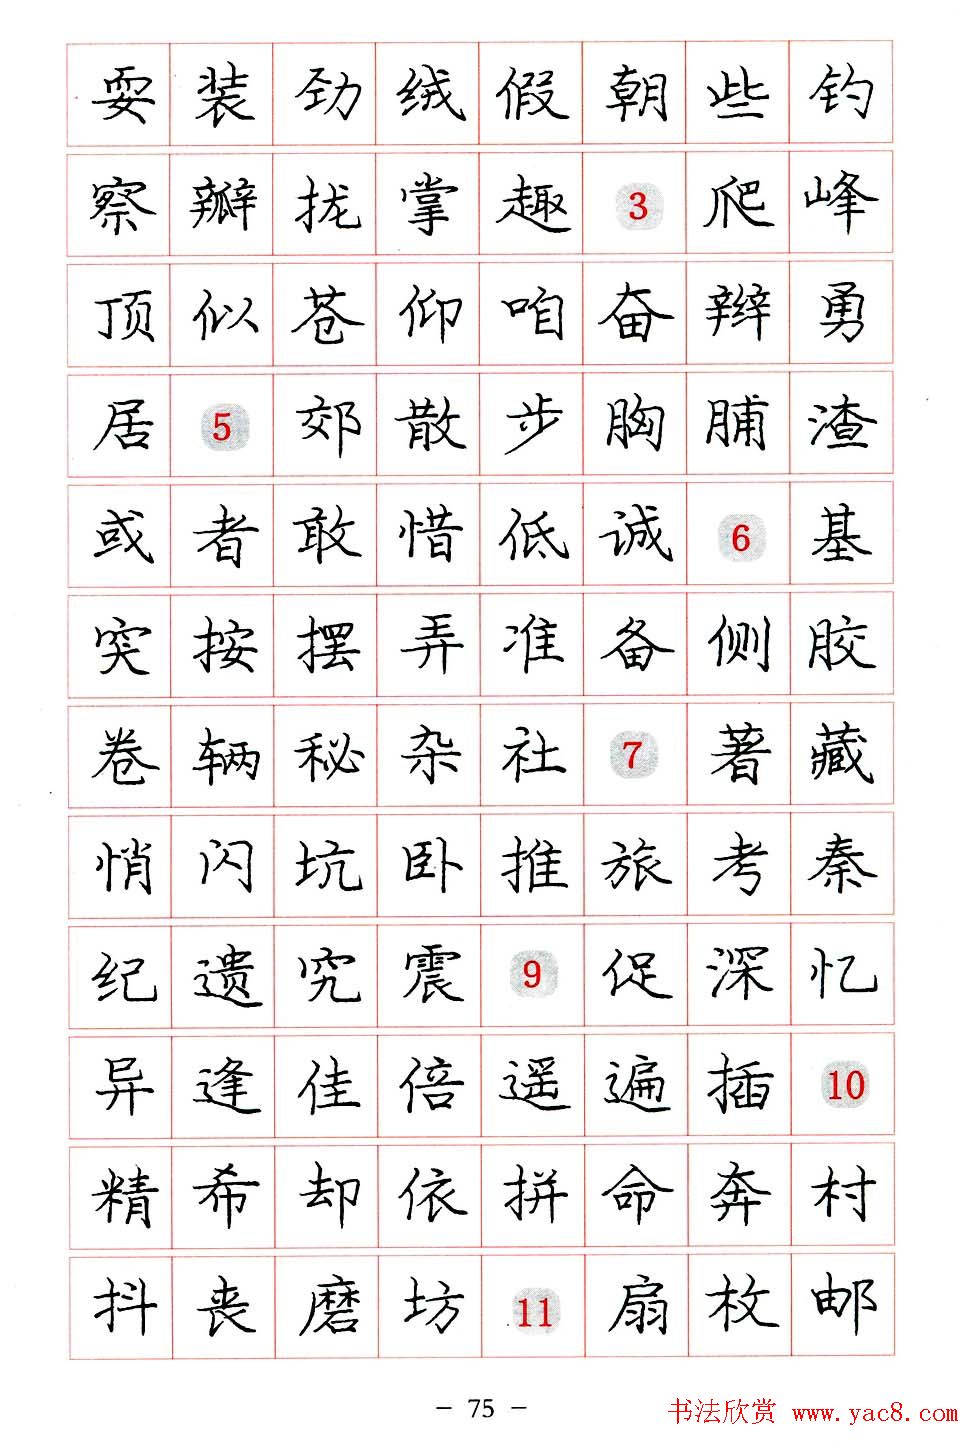 耍装劲绒假朝些钓
察瓣拢掌趣3爬峰
顶似苍仰咱奋辫勇
居5郊散步胸脯渣
或者敢惜低诚6基
突按摆弄准备侧胶
卷辆秘杂社7著藏
悄闪坑卧推旅考秦
纪遗究震9促深忆
异逢佳倍遥遍插10
精希却依拼命奔村
抖丧磨坊11扇枚邮
- 75 -
书法欣赏 www.yac8.com